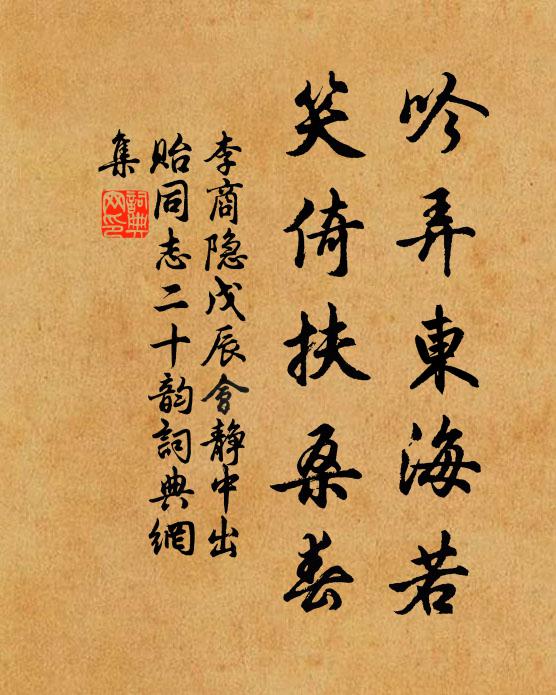 吟弄東海若
笑倚扶桑春
李商隐戊辰會静中出
貽同志二十韵詞典網
集
詞典网印